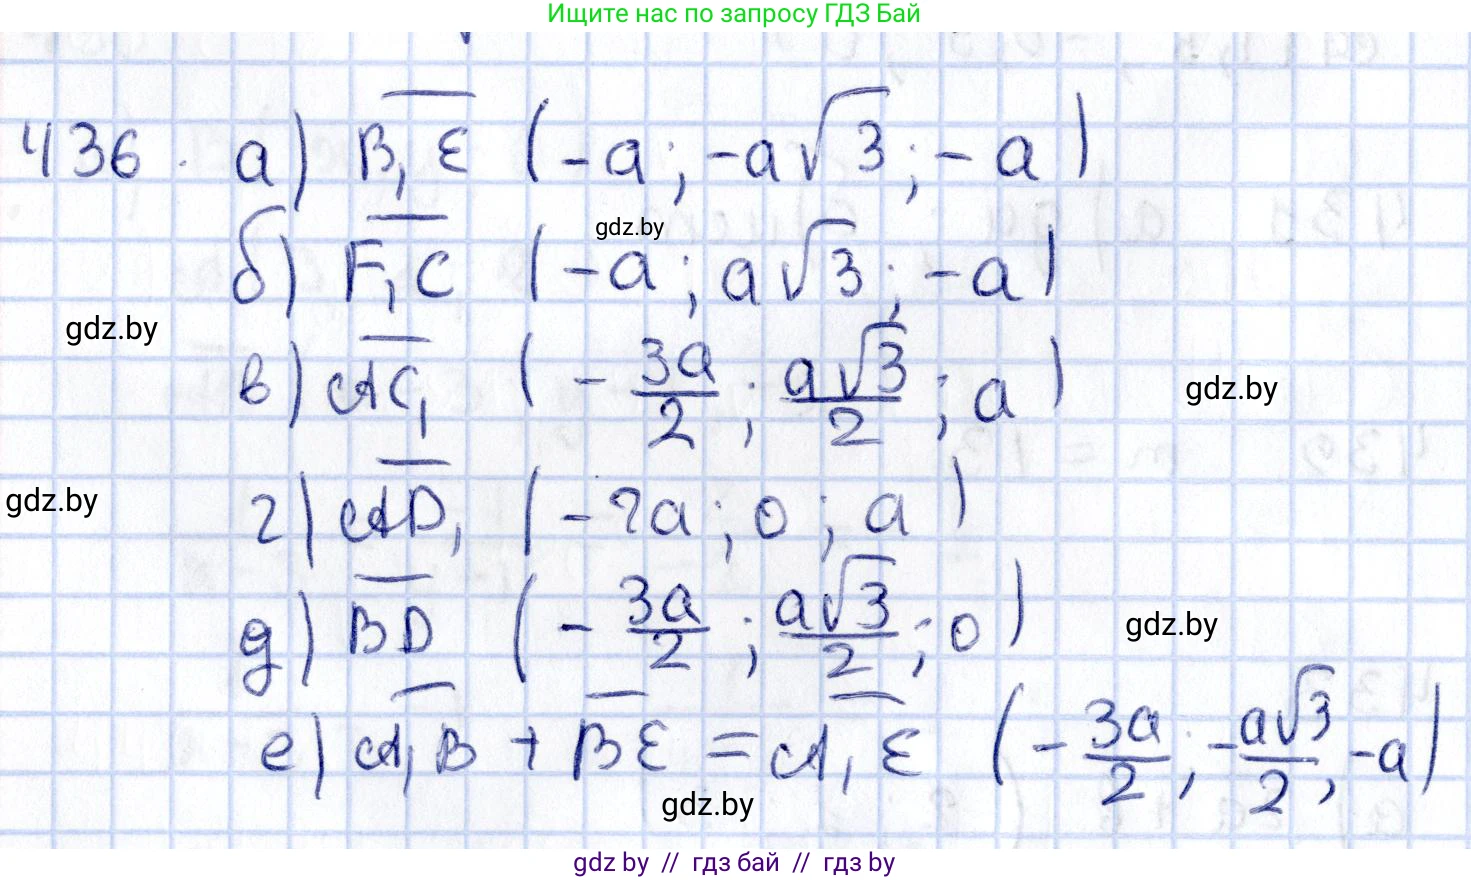 Ищите нас по запросу ГДЗ Бай
436. а) B₁E (-a; -a√3; -a)
gdz.by
б) F₁C (-a; a√3; -a)
gdz.by
в) AC₁ (-3a/2; a√3/2; a)
gdz.by
gdz.by
г) AD₁ (-2a; 0; a)
д) BD (-3a/2; a√3/2; 0)
gdz.by
е) A₁B + BE = A₁E (-3a/2; -a√3/2; -a)
gdz.by
gdz by // гдз бай // гдз by